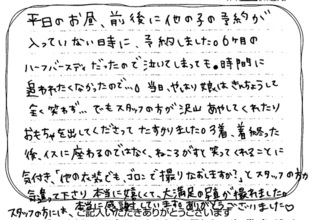 平日のお昼、前後に他の子の予約が
入っていない日時に、予約しました。6ヶ月の
ハーフバースディだったので泣いてしまっても。時間に
追われたくなかったので…。当日、やっぱり娘はきんちょうして
全く笑わず… でもスタッフの方が沢山あやしてくれたり
おもちゃを出してくださって たすかりました。3着、着終った
後、イスに座わるのではなく、ねころがすと笑ってくれることに
気付き、「他のお衣装でも、ゴロンで撮りなおしますか?」とスタッフの方が
言って下さり 本当に嬉しくて、大満足の写真が撮れました。
スタッフの方には、本当に感謝しています。ありがとうございました♡
ご記入いただきありがとうございます